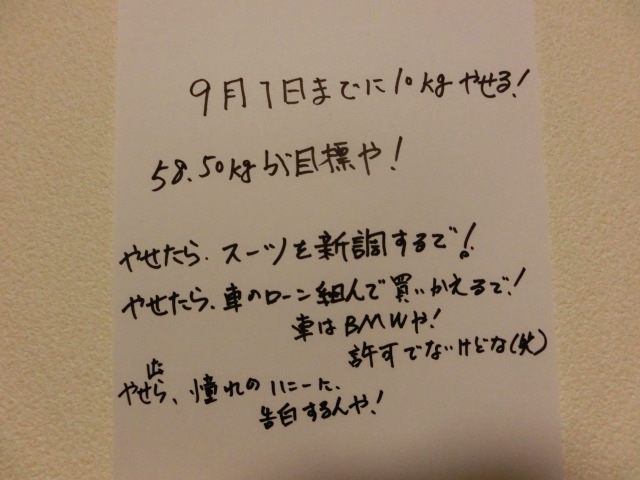 9月1日までに10kgやせる!
58.50kgが目標や!
やせたら、スーツを新調するで!
やせたら、車のローン組んで買いかえるで!
車はBMWや!
許可でないけどな(笑)
やせたら、憧れのハニーに、
告白するんや!